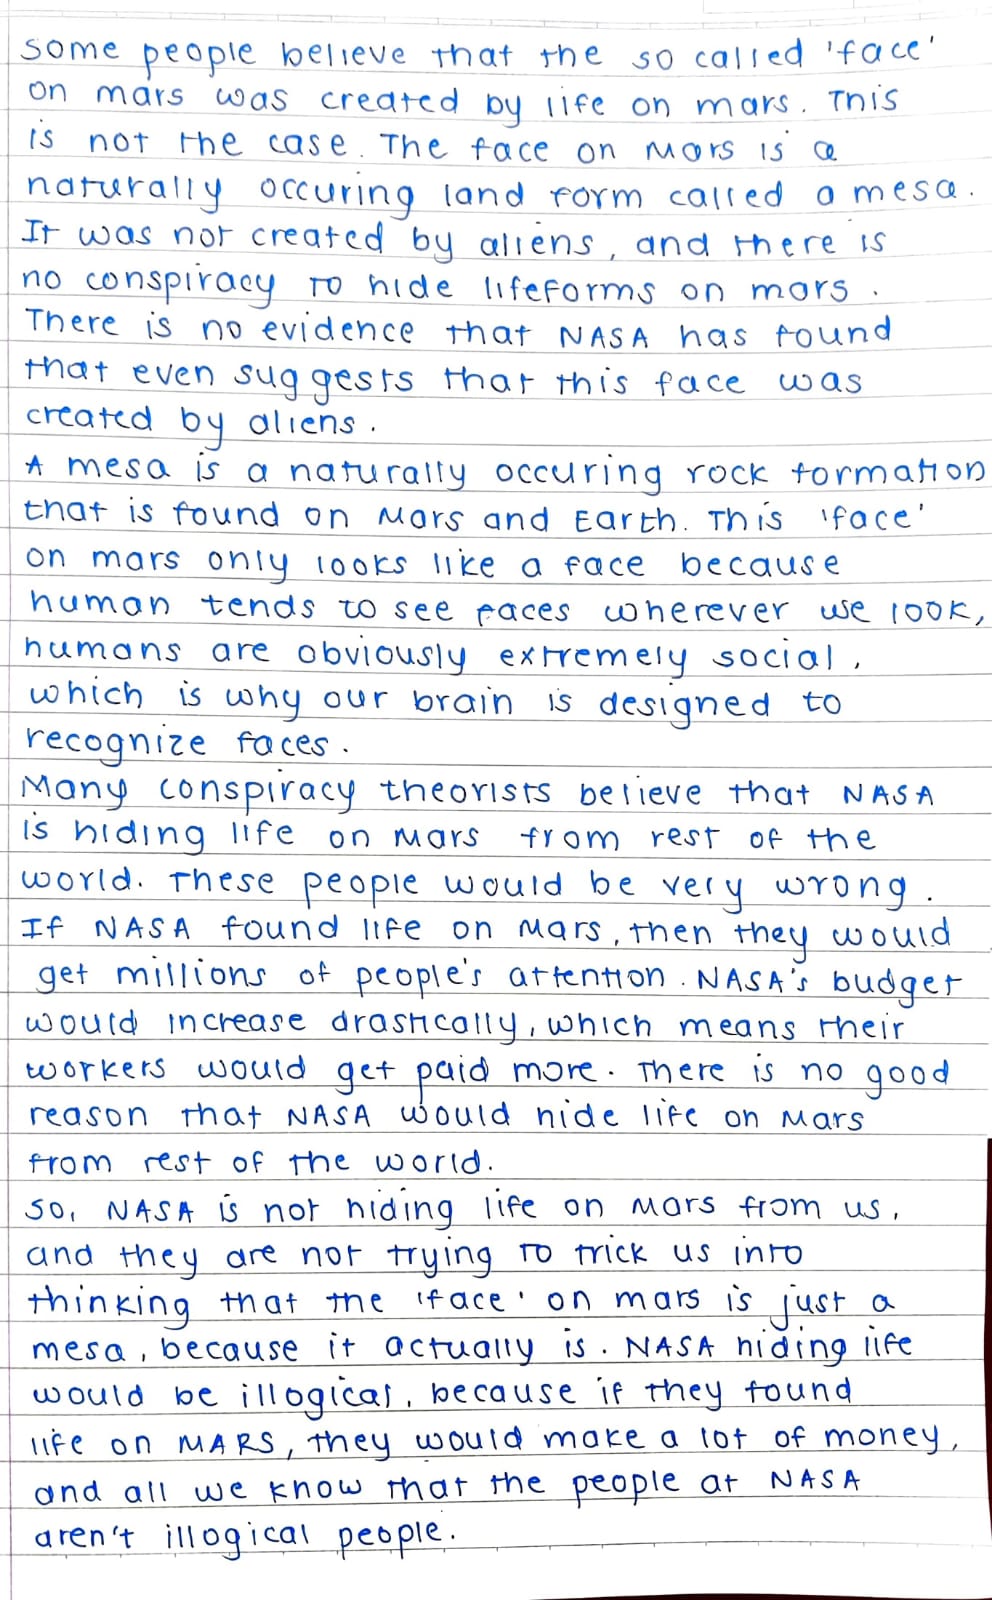 Some people believe that the so called 'face'
on mars was created by life on mars. This
is not the case. The face on Mars is a
naturally occuring land form called a mesa.
It was not created by aliens, and there is
no conspiracy to hide lifeforms on mars.
There is no evidence that NASA has found
that even suggests that this face was
created by aliens.
A mesa is a naturally occuring rock formation
that is found on Mars and Earth. This 'face'
on mars only looks like a face because
human tends to see faces wherever we look,
humans are obviously extremely social,
which is why our brain is designed to
recognize faces.
Many conspiracy theorists believe that NASA
is hiding life on Mars from rest of the
world. These people would be very wrong.
If NASA found life on Mars, then they would
get millions of people's attention. NASA's budget
would increase drastically, which means their
workers would get paid more. There is no good
reason that NASA would hide life on Mars
from rest of the world.
So, NASA is not hiding life on Mars from us,
and they are not trying to trick us into
thinking that the 'face' on mars is just a
mesa, because it actually is. NASA hiding life
would be illogical, because if they found
life on MARS, they would make a lot of money,
and all we know that the people at NASA
aren't illogical people.